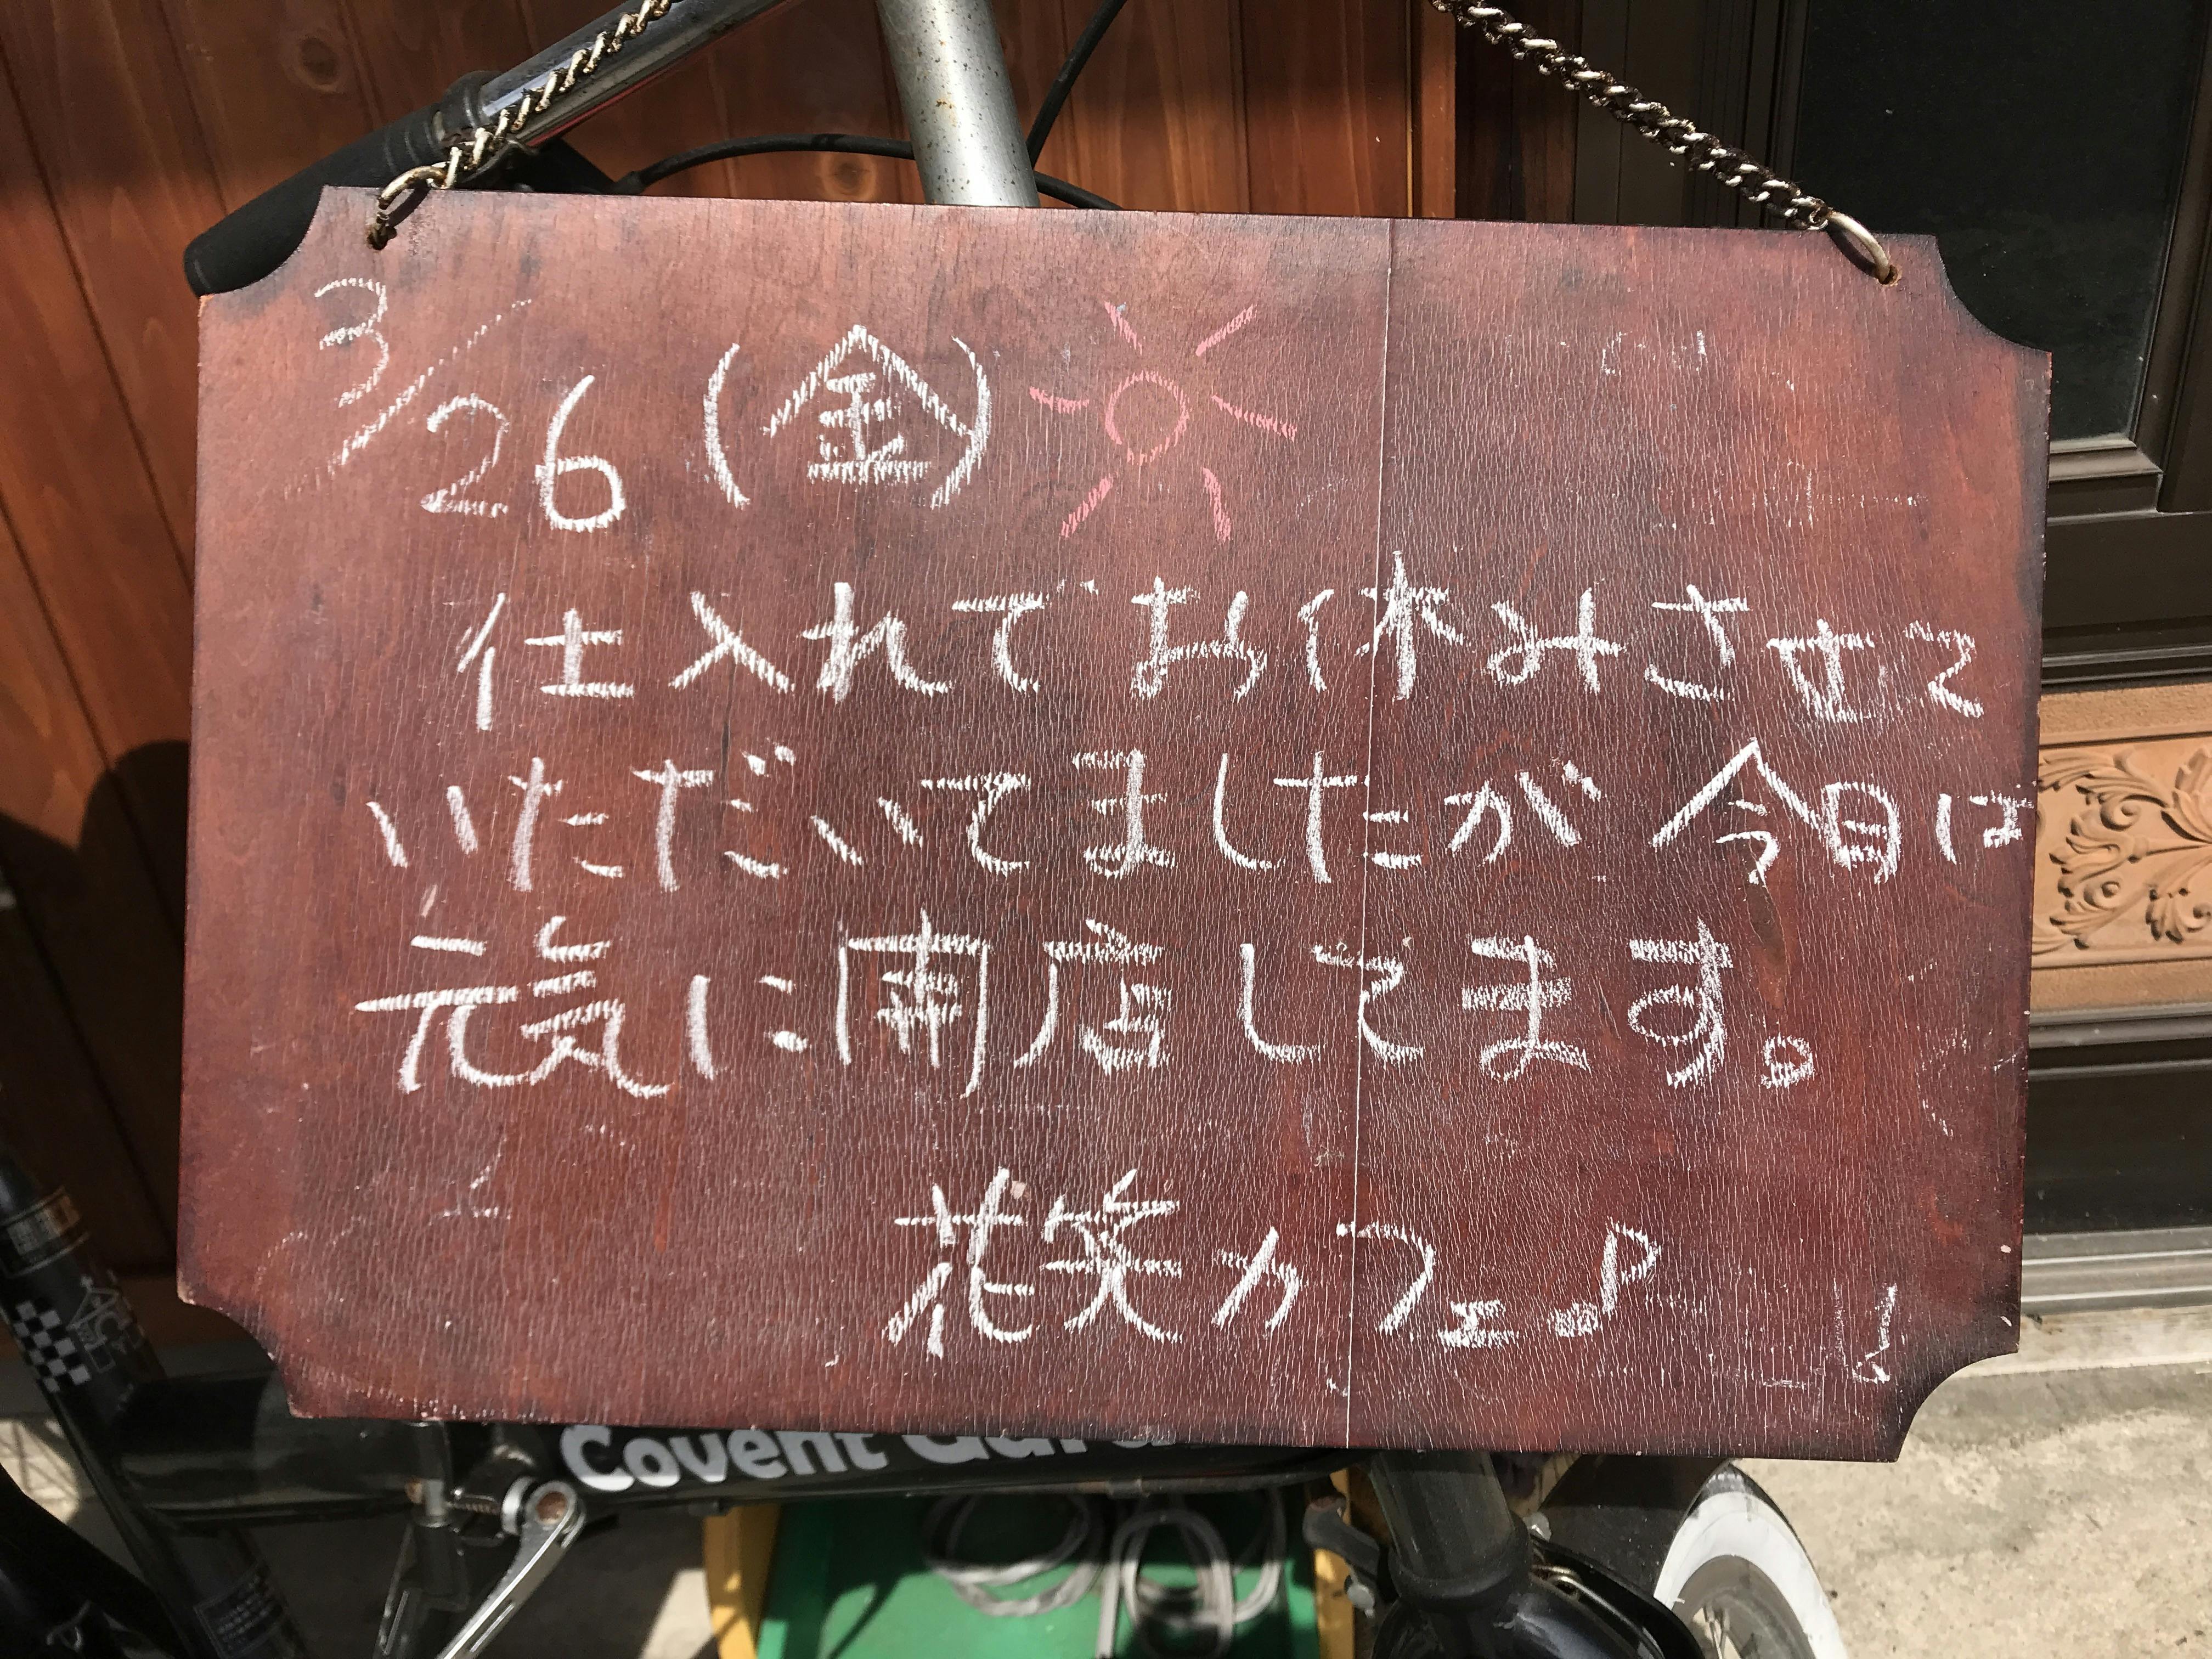 3/26(金)
仕入れでお休みさせて
いただいてましたが 今日は
元気に開店してます。
花笑カフェ♪
Covent